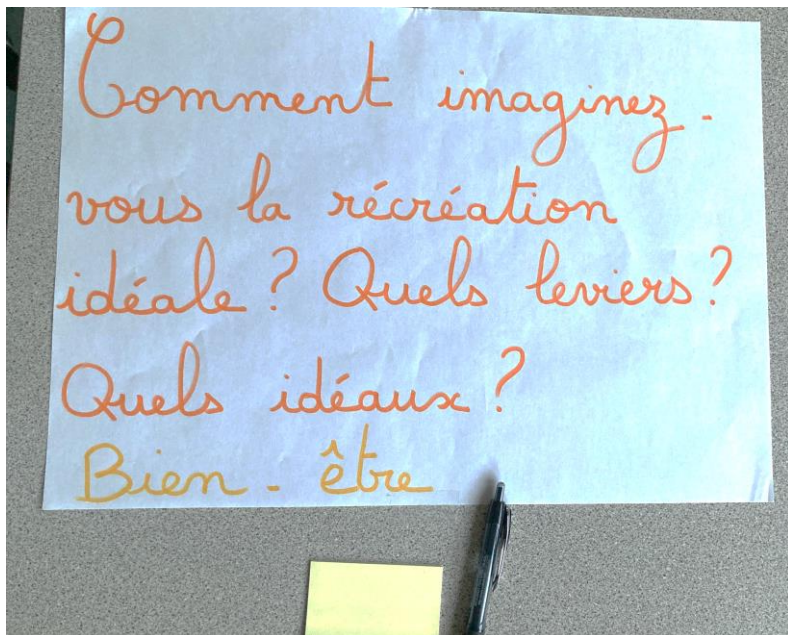 Comment imaginez-
vous la récréation
idéale ? Quels leviers ?
Quels idéaux ?
Bien-être